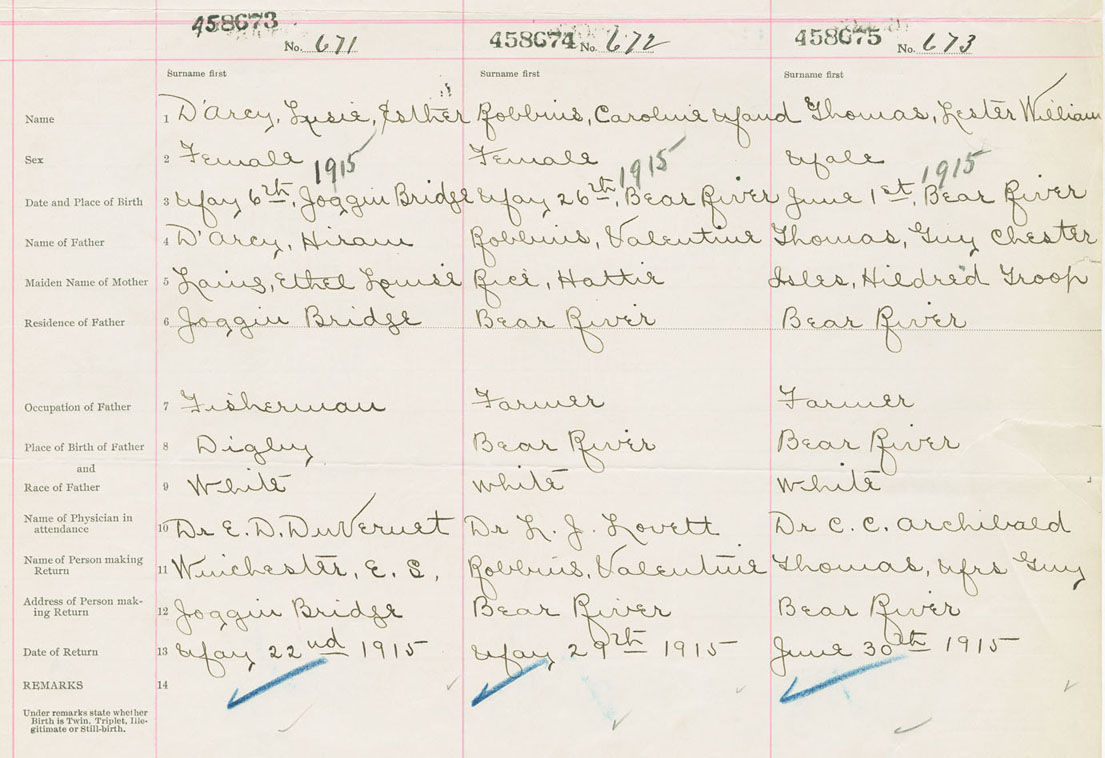 458673 458674 458675
No. 671 No. 672 No. 673
Surname first Surname first Surname first
Name 1 D'Arcy, Lusie, Esther Robbins, Caroline Maud Thomas, Lester William
Sex 2 Female Female Male
1915 1915 1915
Date and Place of Birth 3 May 6th, Joggin Bridge May 26th, Bear River June 1st, Bear River
Name of Father 4 D'Arcy, Hiram Robbins, Valentine Thomas, Guy Chester
Maiden Name of Mother 5 Ethel Louise Rice, Hattie Isles, Hildred Troop
Residence of Father 6 Joggin Bridge Bear River Bear River
Occupation of Father 7 Fisherman Farmer Farmer
Place of Birth of Father 8 Digby Bear River Bear River
and
Race of Father 9 White White White
Name of Physician in
attendance 10 Dr E. D. DuVernet Dr L. J. Lovett Dr C. C. Archibald
Name of Person making
Return 11 Winchester, E. S. Robbins, Valentine Thomas, Mrs Guy
Address of Person mak-
ing Return 12 Joggin Bridge Bear River Bear River
Date of Return 13 May 22nd 1915 May 29th 1915 June 30th 1915
REMARKS 14
Under remarks state whether
Birth is Twin. Triplet, Ille-
gitimate or Still-birth.